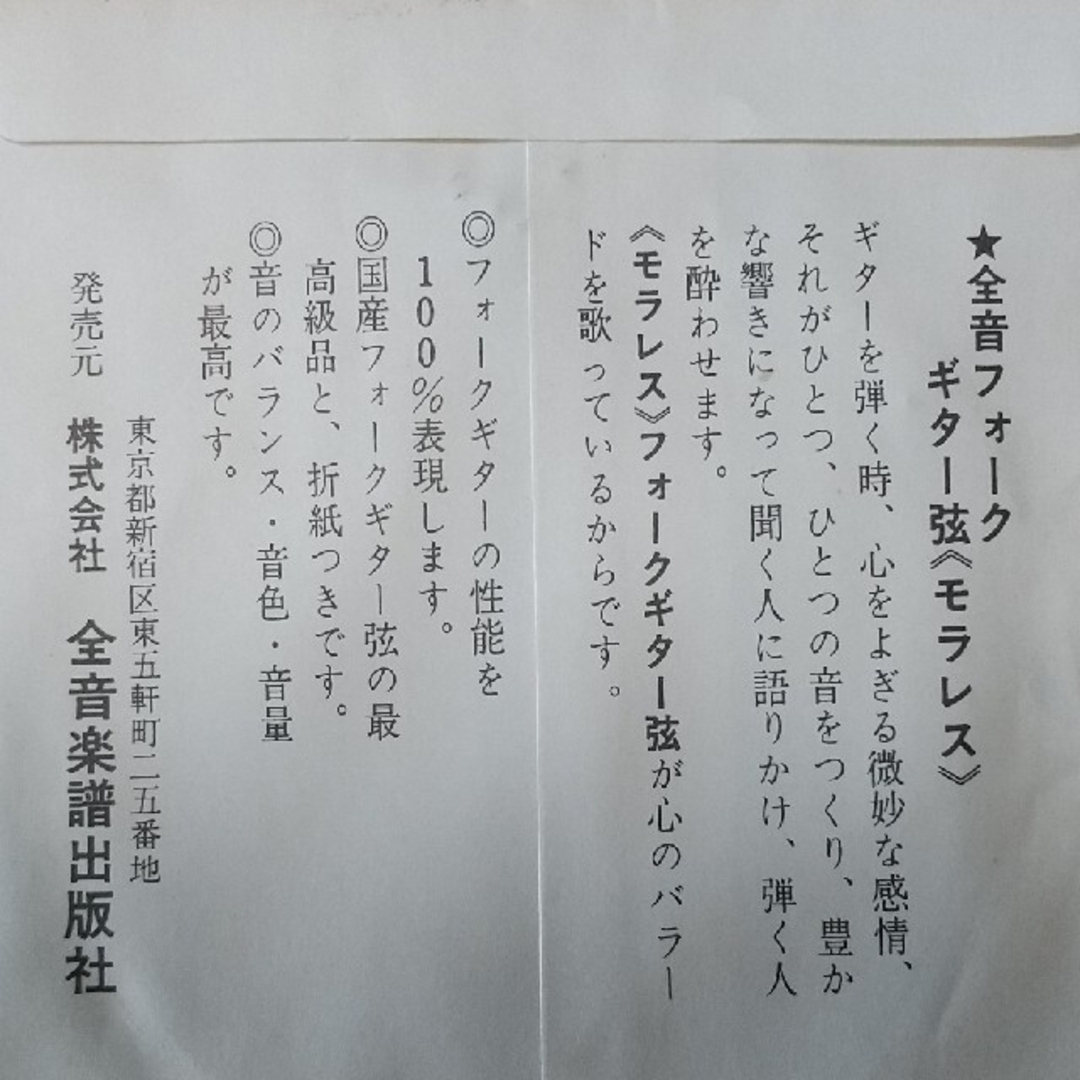 ★全音フォーク
ギター弦《モラレス》
ギターを弾く時、心をよぎる微妙な感情、
それがひとつ、ひとつの音をつくり、豊か
な響きになって聞く人に語りかけ、弾く人
を酔わせます。
《モラレス》フォークギター弦が心のバラー
ドを歌っているからです。
◎フォークギターの性能を
100%表現します。
◎国産フォークギター弦の最
高級品と、折紙つきです。
◎音のバランス・音色・音量
が最高です。
東京都新宿区東五軒町二五番地
発売元 株式会社 全音楽譜出版社